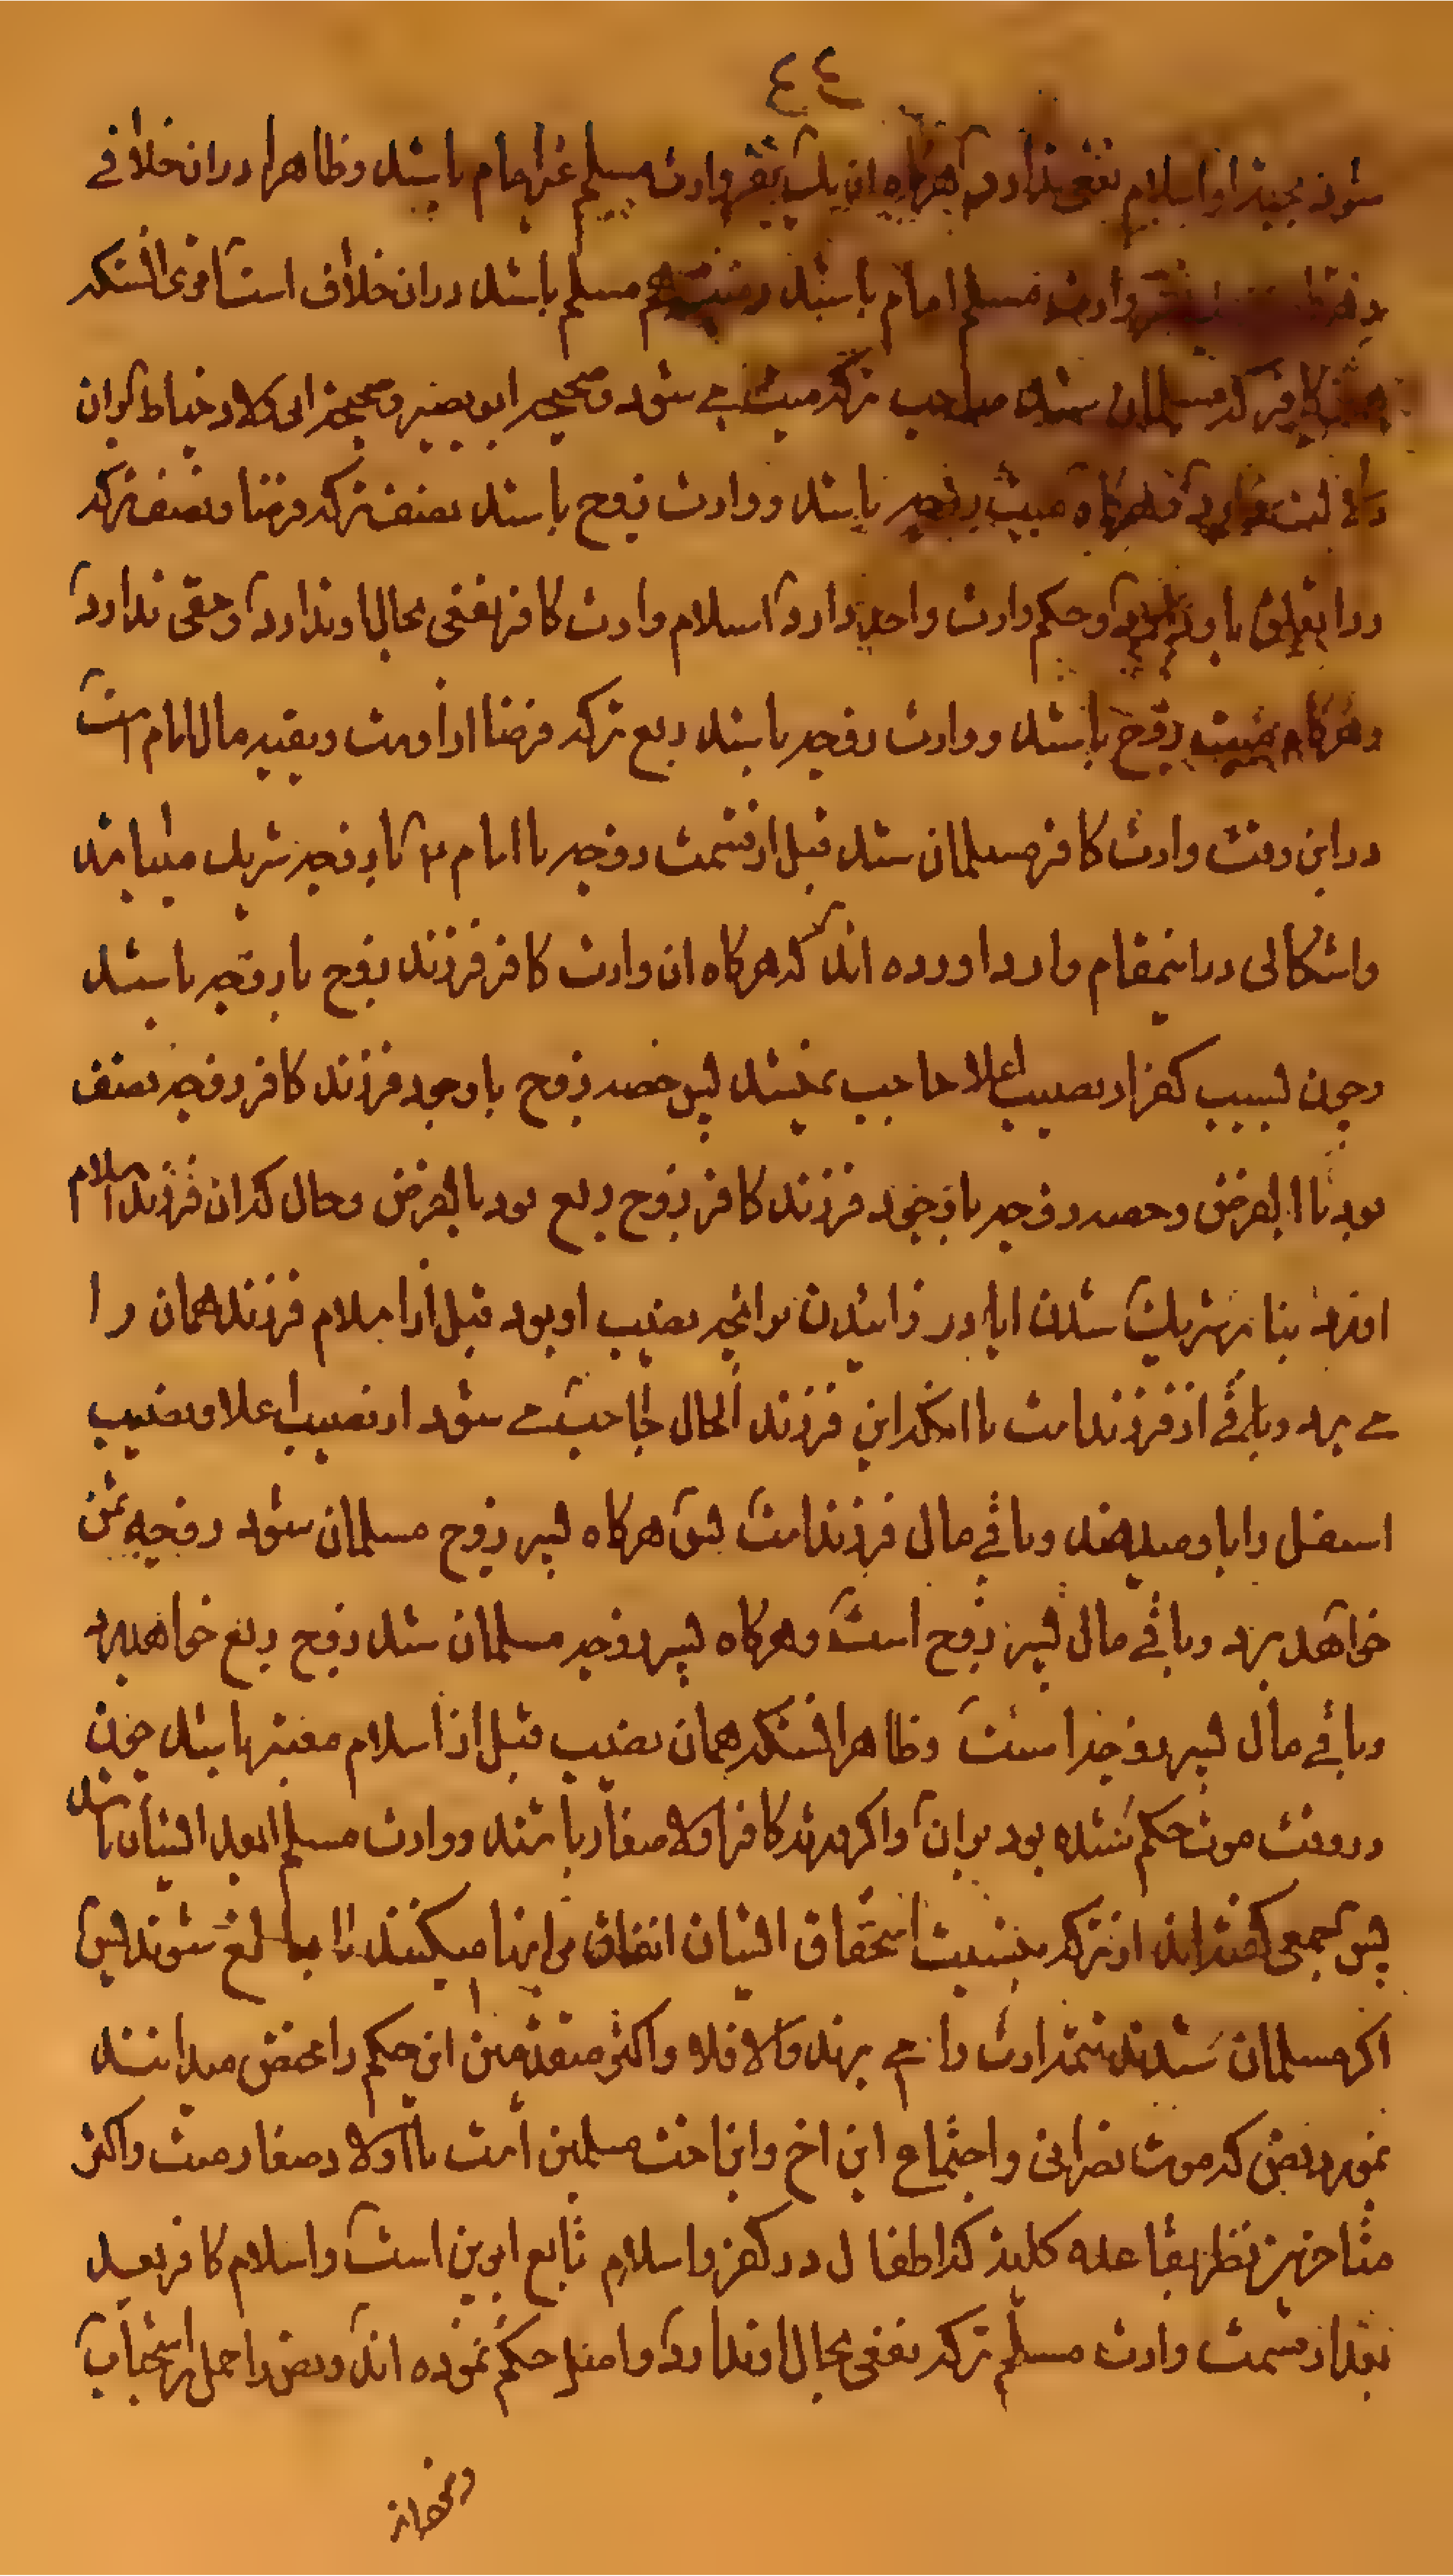 ٤٤
شود بجهة او اسلام نفعی ندارد هرگاه ان یک نفر وارث مسلم غیر امام باشد و ظاهرا در ان خلافی
وارث مسلم امام باشد مسلم باشد در ان خلاف است اقوی انستکه
کافر که مسلمان شد صاحب ترکه میت می شود و صحیحه ابو بصیر و صحیحه ابی ولاد حناط بر ان
و هرگاه میت زوجه باشد و وارث زوج باشد نصف ترکه فرضا و نصف ترکه
ردا تعلق باو و حکم وارث واحد دارد اسلام وارث کافر نفعی بحال او ندارد و حقی ندارد
و هرگاه میت زوج باشد و وارث زوجه باشد ربع ترکه فرضا از اوست و بقیه مال امام است
در این وقت وارث کافر مسلمان شد قبل از قسمت زوجه با امام ۴ با زوجه شریک میباشد
و اشکالی در اینمقام وارد اورده اند که هرگاه ان وارث کافر فرزند زوج یا زوجه باشد
و چون بسبب کفر از نصیب اعلا حاجب نمیشد پس حصه زوج با وجود فرزند کافر زوجه نصف
بود بالفرض و حصه زوجه با وجود فرزند کافر زوج ربع بود بالفرض و حال که ان فرزند اسلام
اورد بنا بر شریک شدن ایا در زایدن بر انچه نصیب او بود قبل از اسلام فرزند همان را
می برد و باقی از فرزند است یا انکه این فرزند الحال حاجب می شود از نصیب اعلا و نصیب
اسفل را باو میدهند و باقی مال فرزند است پس هرگاه پسر زوج مسلمان شود زوجه ثمن
خواهد برد و باقی مال پسر زوج است و هرگاه پسر زوجه مسلمان شد زوج ربع خواهد برد
و باقی مال پسر زوجه است و ظاهرا انستکه همان نصیب قبل از اسلام معتبر باشد چون
در وقت موت حکم شده بود بر ان و اگر ورثه کافر اولاد صغار باشند و وارث مسلم ابعد از ایشان باشد
پس جمعی گفته اند از ترکه بنسبت استحقاق ایشان انفاق بر اینها میکنند تا بالغ شوند پس
اگر مسلمان شدند تتمه ارث را می برند و الا فلا و اکثر متقدمین این حکم را مختص میدانند
بمورد نص که موت نصرانی و اجتماع ابن اخ و ابن اخت مسلمین است با اولاد صغار میت و اکثر
متاخرین نظر بقاعده کلیه که اطفال در کفر و اسلام تابع ابوین است و اسلام کافر بعد
بعد از قسمت وارث مسلم ترکه نفعی بحال او ندارد و امثل حکم نموده اند و نص را حمل بر استحباب